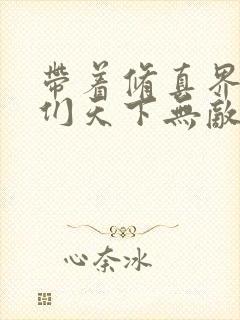 帶着脩真界
们天下無敵
心奈冰